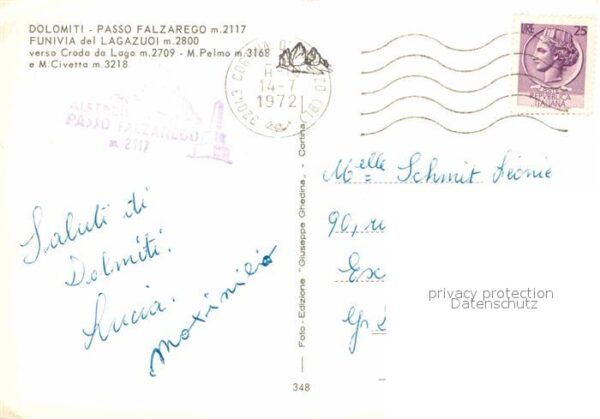 DOLOMITI - PASSO FALZAREGO m.2117
FUNIVIA del LAGAZUOI m.2800
verso Croda da Lago m.2709 - M.Pelmo m.3168
e M.Civetta m.3218
ALBERGO
PASSO FALZAREGO
m 2117
32043 CORTINA D' ZO (BL)
14-7
1972
LIRE 25
REPVBBLICA
ITALIANA
Saluti di
Dolmiti.
Lucia.
Foto - Edizione "Giuseppe Ghedina" - Cortina
348
Melle Schmit Léonie
90, ru
Esc
privacy protection
Datenschutz